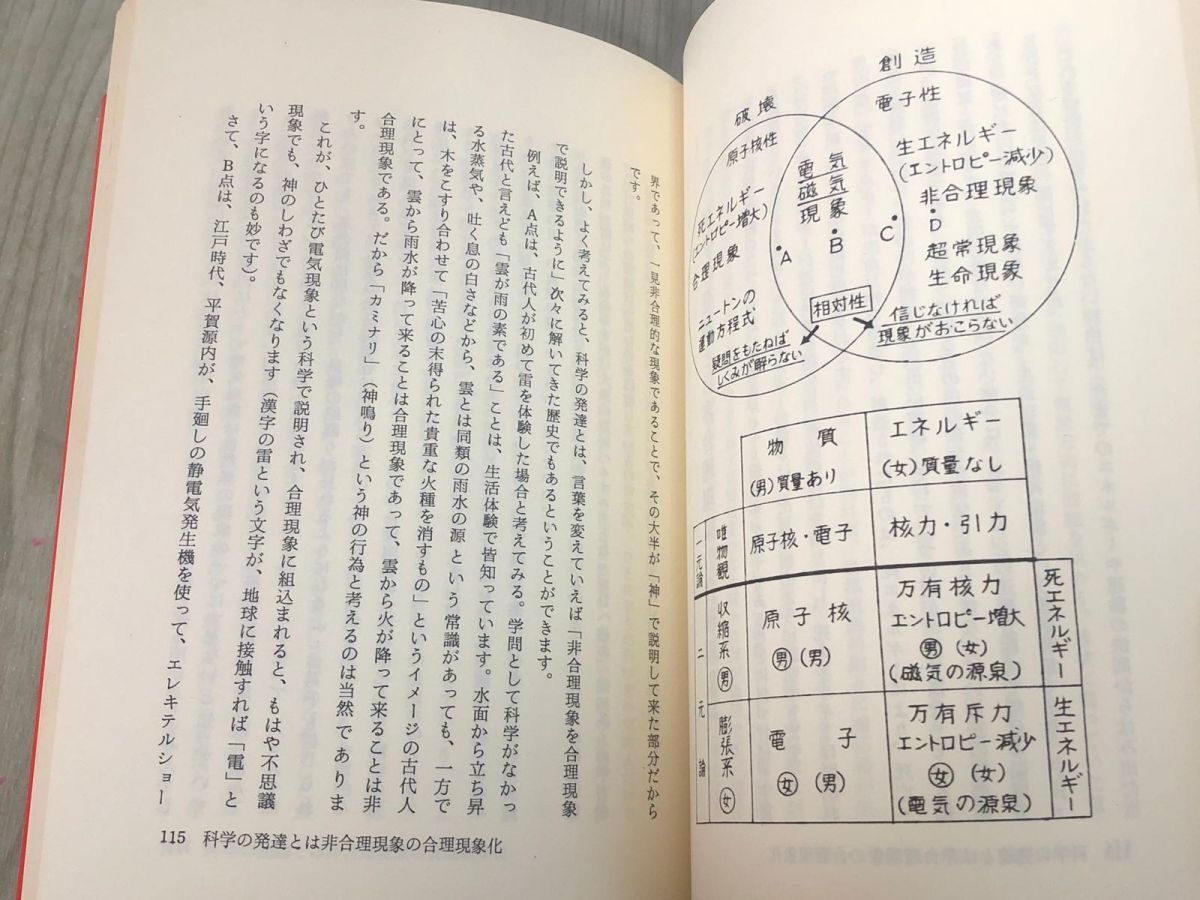 創造
破壊
電子性
原子核性
生エネルギー
(エントロピー減少)
非合理現象
D
超常現象
生命現象
電気
磁気
現象
A
B
C
死エネルギー
(エントロピー増大)
合理現象
ニュートンの
運動方程式
相対性
疑問をもたねば
しくみが解らない
信じなければ
現象がおこらない
物質
(男)質量あり
エネルギー
(女)質量なし
一元論
唯物観
原子核・電子
核力・引力
二元論
収縮系㊚
原子核
㊚(男)
万有核力
エントロピー増大
㊚(女)
(磁気の源泉)
死エネルギー
膨張系㊛
電子
㊛(男)
万有斥力
エントロピー減少
㊛(女)
(電気の源泉)
生エネルギー
界であって、一見非合理的な現象であることで、その大半が「神」で説明して来た部分だから
です。
しかし、よく考えてみると、科学の発達とは、言葉を変えていえば「非合理現象を合理現象
で説明できるように」次々に解いてきた歴史でもあるということができます。
例えば、A点は、古代人が初めて雷を体験した場合と考えてみる。学問として科学がなかっ
た古代と言えども「雲が雨の素である」ことは、生活体験で皆知っています。水面から立ち昇
る水蒸気や、吐く息の白さなどから、雲とは同類の雨水の源という常識があっても、一方で
は、木をこすり合わせて「苦心の末得られた貴重な火種を消すもの」というイメージの古代人
にとって、雲から雨水が降って来ることは合理現象であって、雲から火が降って来ることは非
合理現象である。だから「カミナリ」（神鳴り）という神の行為と考えるのは当然でありま
す。
これが、ひとたび電気現象という科学で説明され、合理現象に組込まれると、もはや不思議
現象でも、神のしわざでもなくなります（漢字の雷という文字が、地球に接触すれば「電」と
いう字になるのも妙です）。
さて、B点は、江戸時代、平賀源内が、手廻しの静電気発生機を使って、エレキテルショー
115 科学の発達とは非合理現象の合理現象化